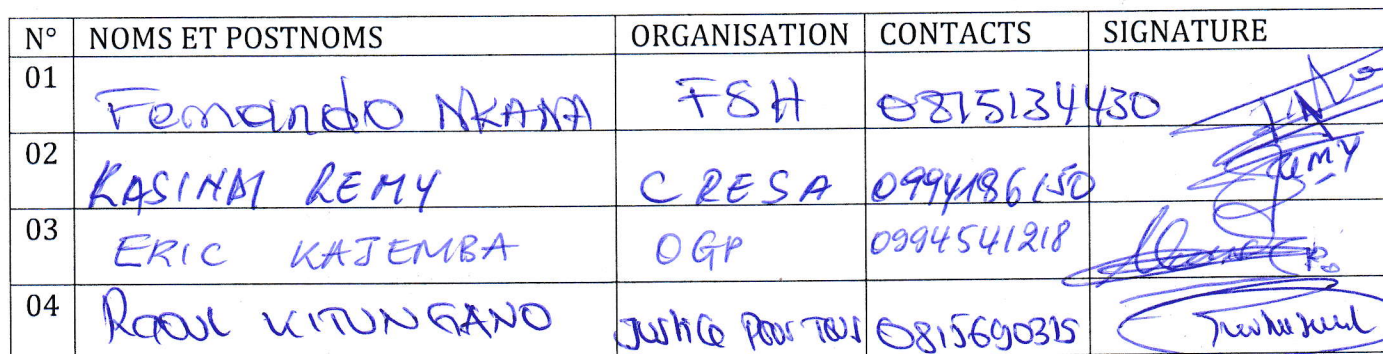 N° NOMS ET POSTNOMS ORGANISATION CONTACTS SIGNATURE
01 Fernando NKANA FSH 0815134430
02 KASINAI REMY CRESA 0994186150 REMY
03 ERIC KAJEMBA OGP 0994541218
04 Raoul KITUNGANO Justice pour Tous 0815690315